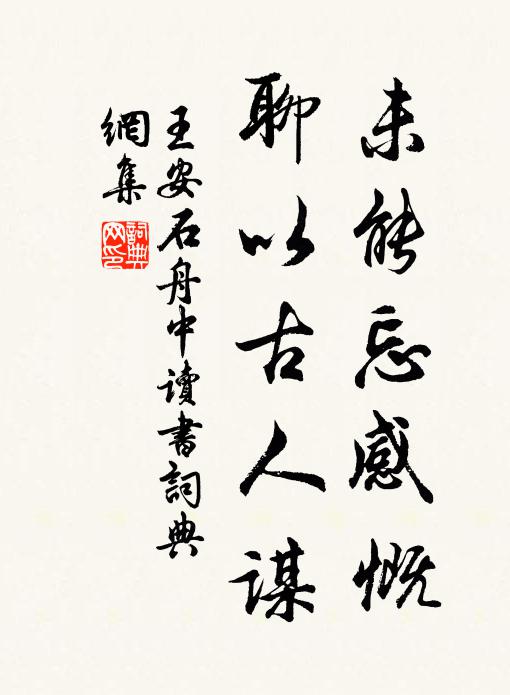 未能忘感慨
聊以古人謀
王安石舟中讀書詞典
網集
詞典
网印